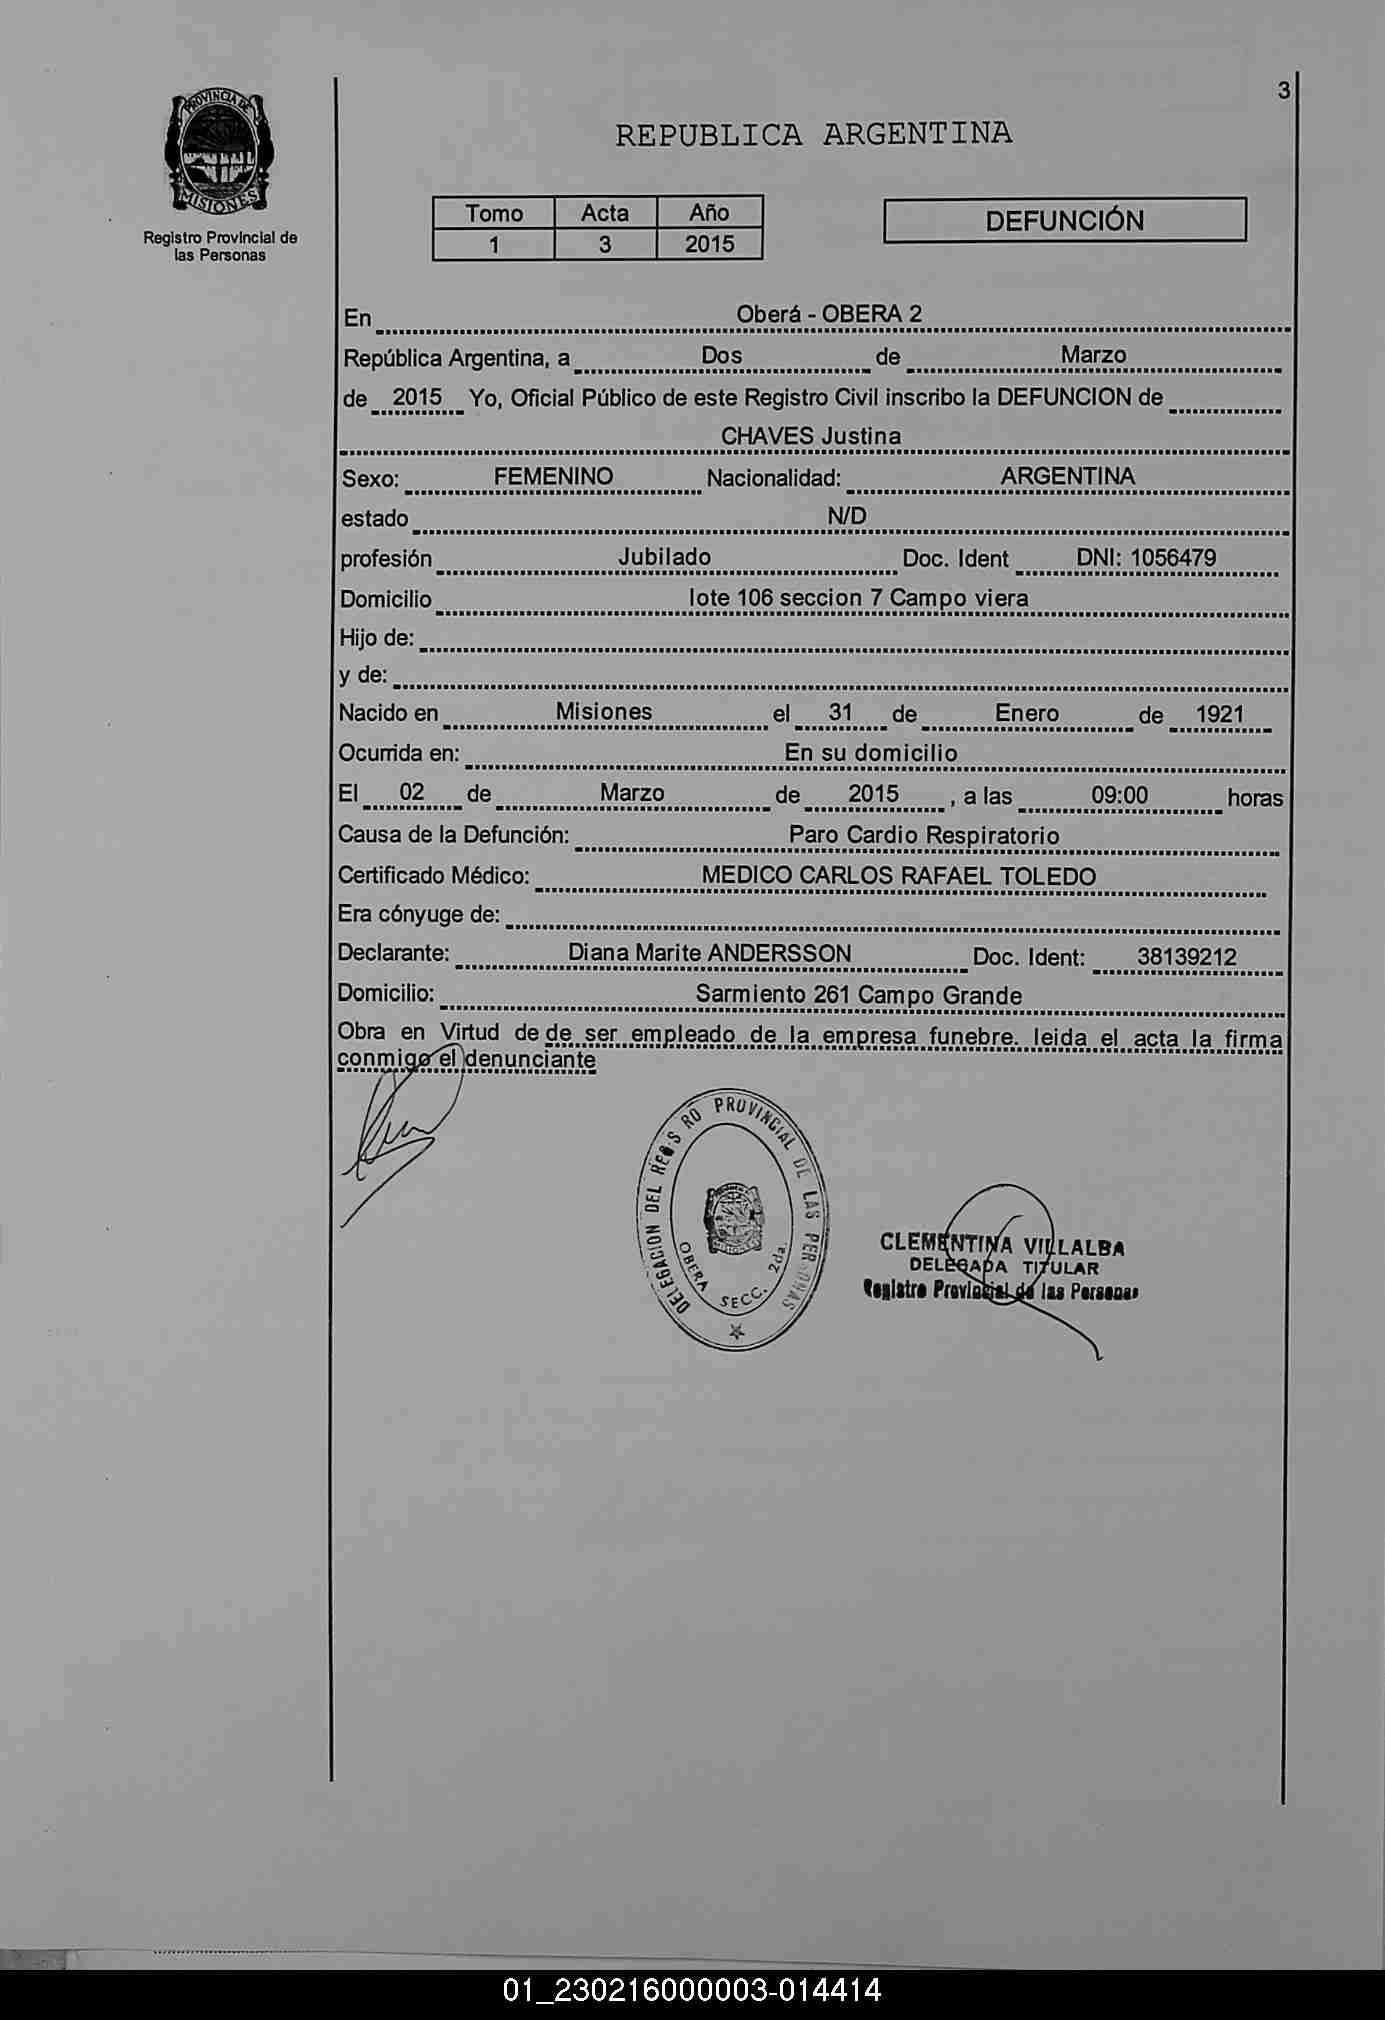 3
PROVINCIA DE
MISIONES
Registro Provincial de
las Personas
REPUBLICA ARGENTINA
Tomo Acta Año
1 3 2015
DEFUNCIÓN
En Oberá - OBERA 2
República Argentina, a Dos de Marzo
de 2015 Yo, Oficial Público de este Registro Civil inscribo la DEFUNCION de
CHAVES Justina
Sexo: FEMENINO Nacionalidad: ARGENTINA
estado N/D
profesión Jubilado Doc. Ident DNI: 1056479
Domicilio lote 106 seccion 7 Campo viera
Hijo de:
y de:
Nacido en Misiones el 31 de Enero de 1921
Ocurrida en: En su domicilio
El 02 de Marzo de 2015 , a las 09:00 horas
Causa de la Defunción: Paro Cardio Respiratorio
Certificado Médico: MEDICO CARLOS RAFAEL TOLEDO
Era cónyuge de:
Declarante: Diana Marite ANDERSSON Doc. Ident: 38139212
Domicilio: Sarmiento 261 Campo Grande
Obra en Virtud de de ser empleado de la empresa funebre. leida el acta la firma
conmigo el denunciante
DELEGACION DEL REGISTRO PROVINCIAL DE LAS PERSONAS
OBERA SECC. 2da.
CLEMENTINA VILLALBA
DELEGADA TITULAR
Registro Provincial de las Personas
01_230216000003-014414